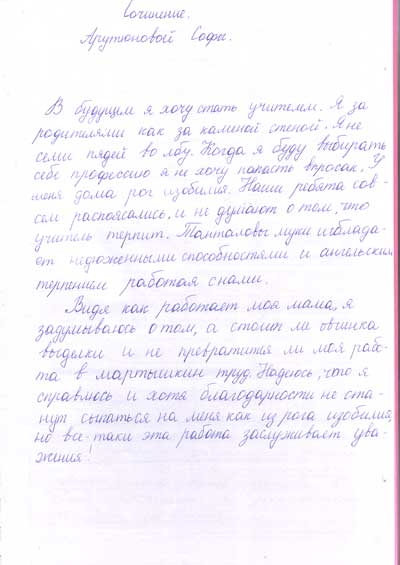 Сочинение.
Арутюновой Софы.
В будущем я хочу стать учителем. Я за
родителями как за каменой стеной. Я не
семи пядей во лбу. Когда я буду выбирать
себе профессию я не хочу попасть впросак. У
меня дома рог изобилия. Наши ребята сов-
сем распоясались, и не думают о том, что
учитель терпит. Танталовы муки и облада-
ет недюженными способностями и ангельским
терпением работая с нами.
Видя как работает моя мама, я
задумываюсь о том, а стоит ли овчинка
выделки и не превратится ли моя рабо-
та в мартышкин труд. Надеюсь, что я
справлюсь и хотя благодарности не ста-
нут сыпаться на меня как из рога изобилия,
но все-таки эта работа заслуживает ува-
жения!